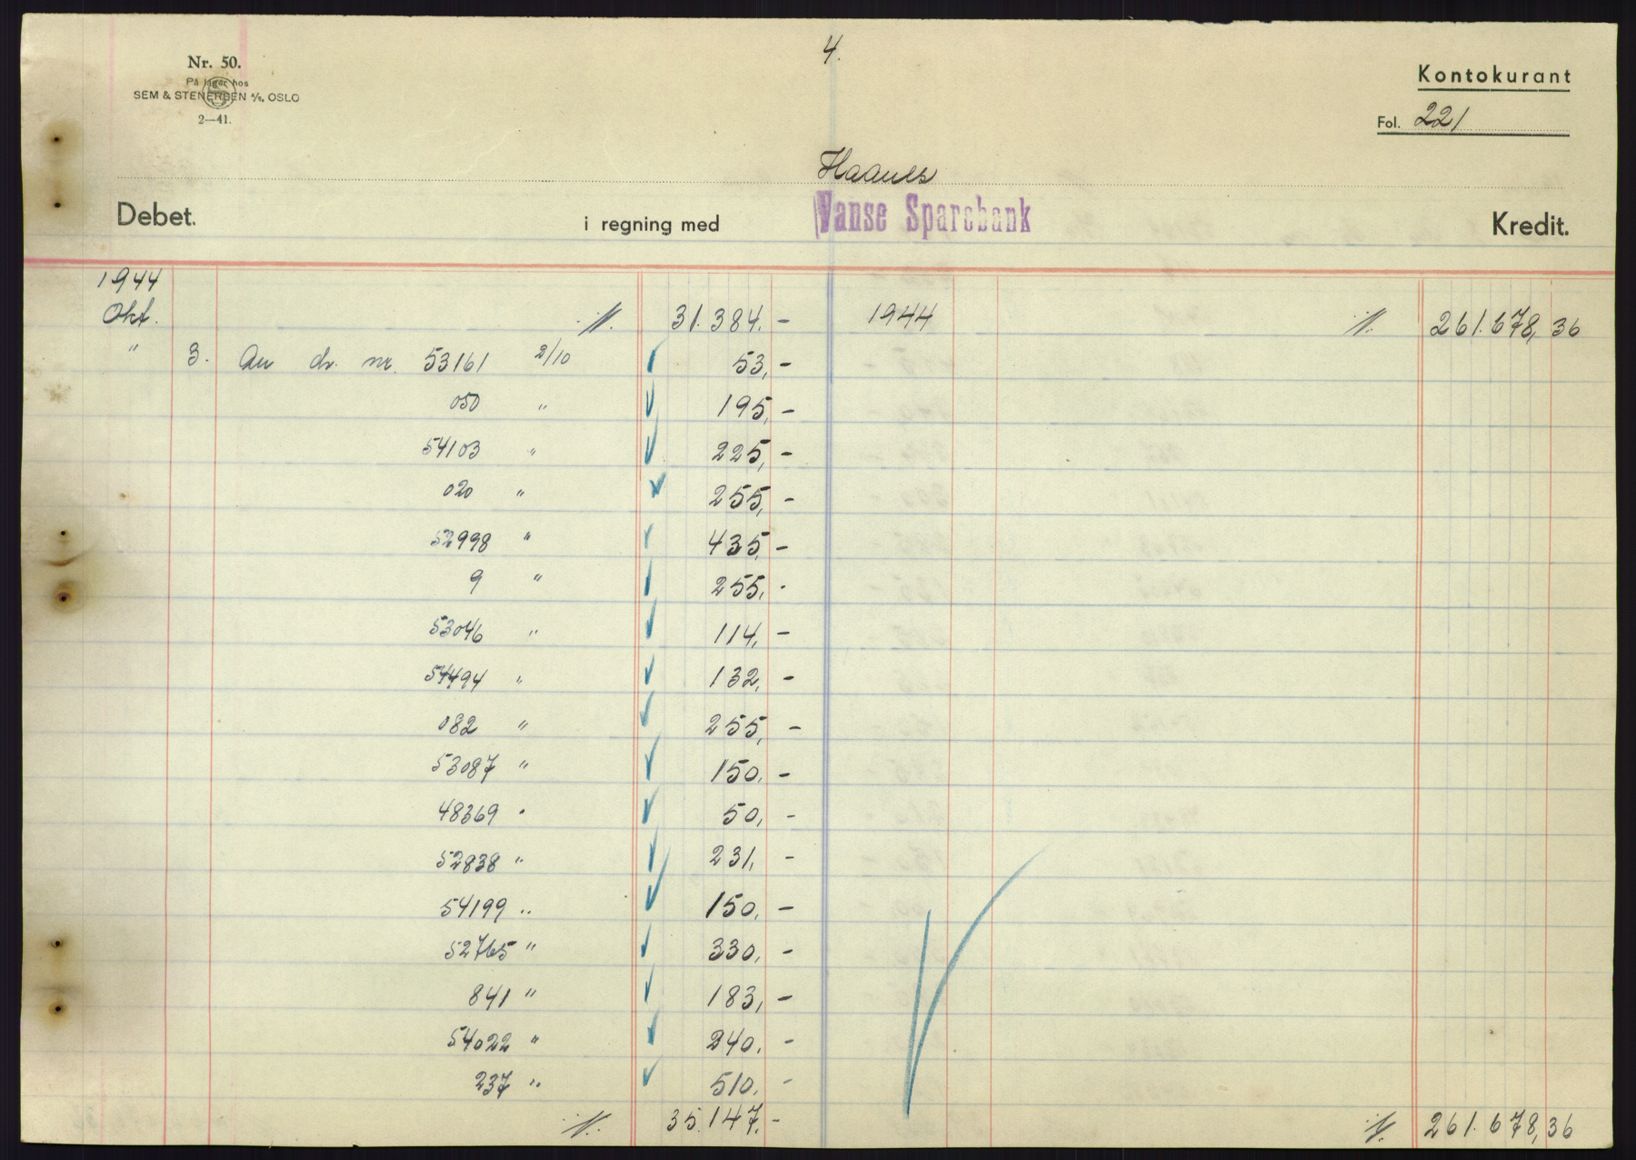 4.
Nr. 50.
På lager hos
SEM & STENERSEN A/S, OSLO
2—41.
Kontokurant
Fol. 221
Haanes
Debet. i regning med Vanse Sparebank Kredit.
1944
Okt. 31.384.- 1944 261.678,36
" 3. An dr. nr. 53161 2/10 53,-
050 " 195,-
54103 " 225,-
020 " 255,-
52998 " 435,-
9 " 255,-
53046 " 114,-
54494 " 132,-
082 " 255,-
53087 " 150,-
48369 " 50,-
52838 " 231,-
54199 " 150,-
52765 " 330,-
841 " 183,-
54022 " 240,-
237 " 510,-
35.147,- 261.678,36